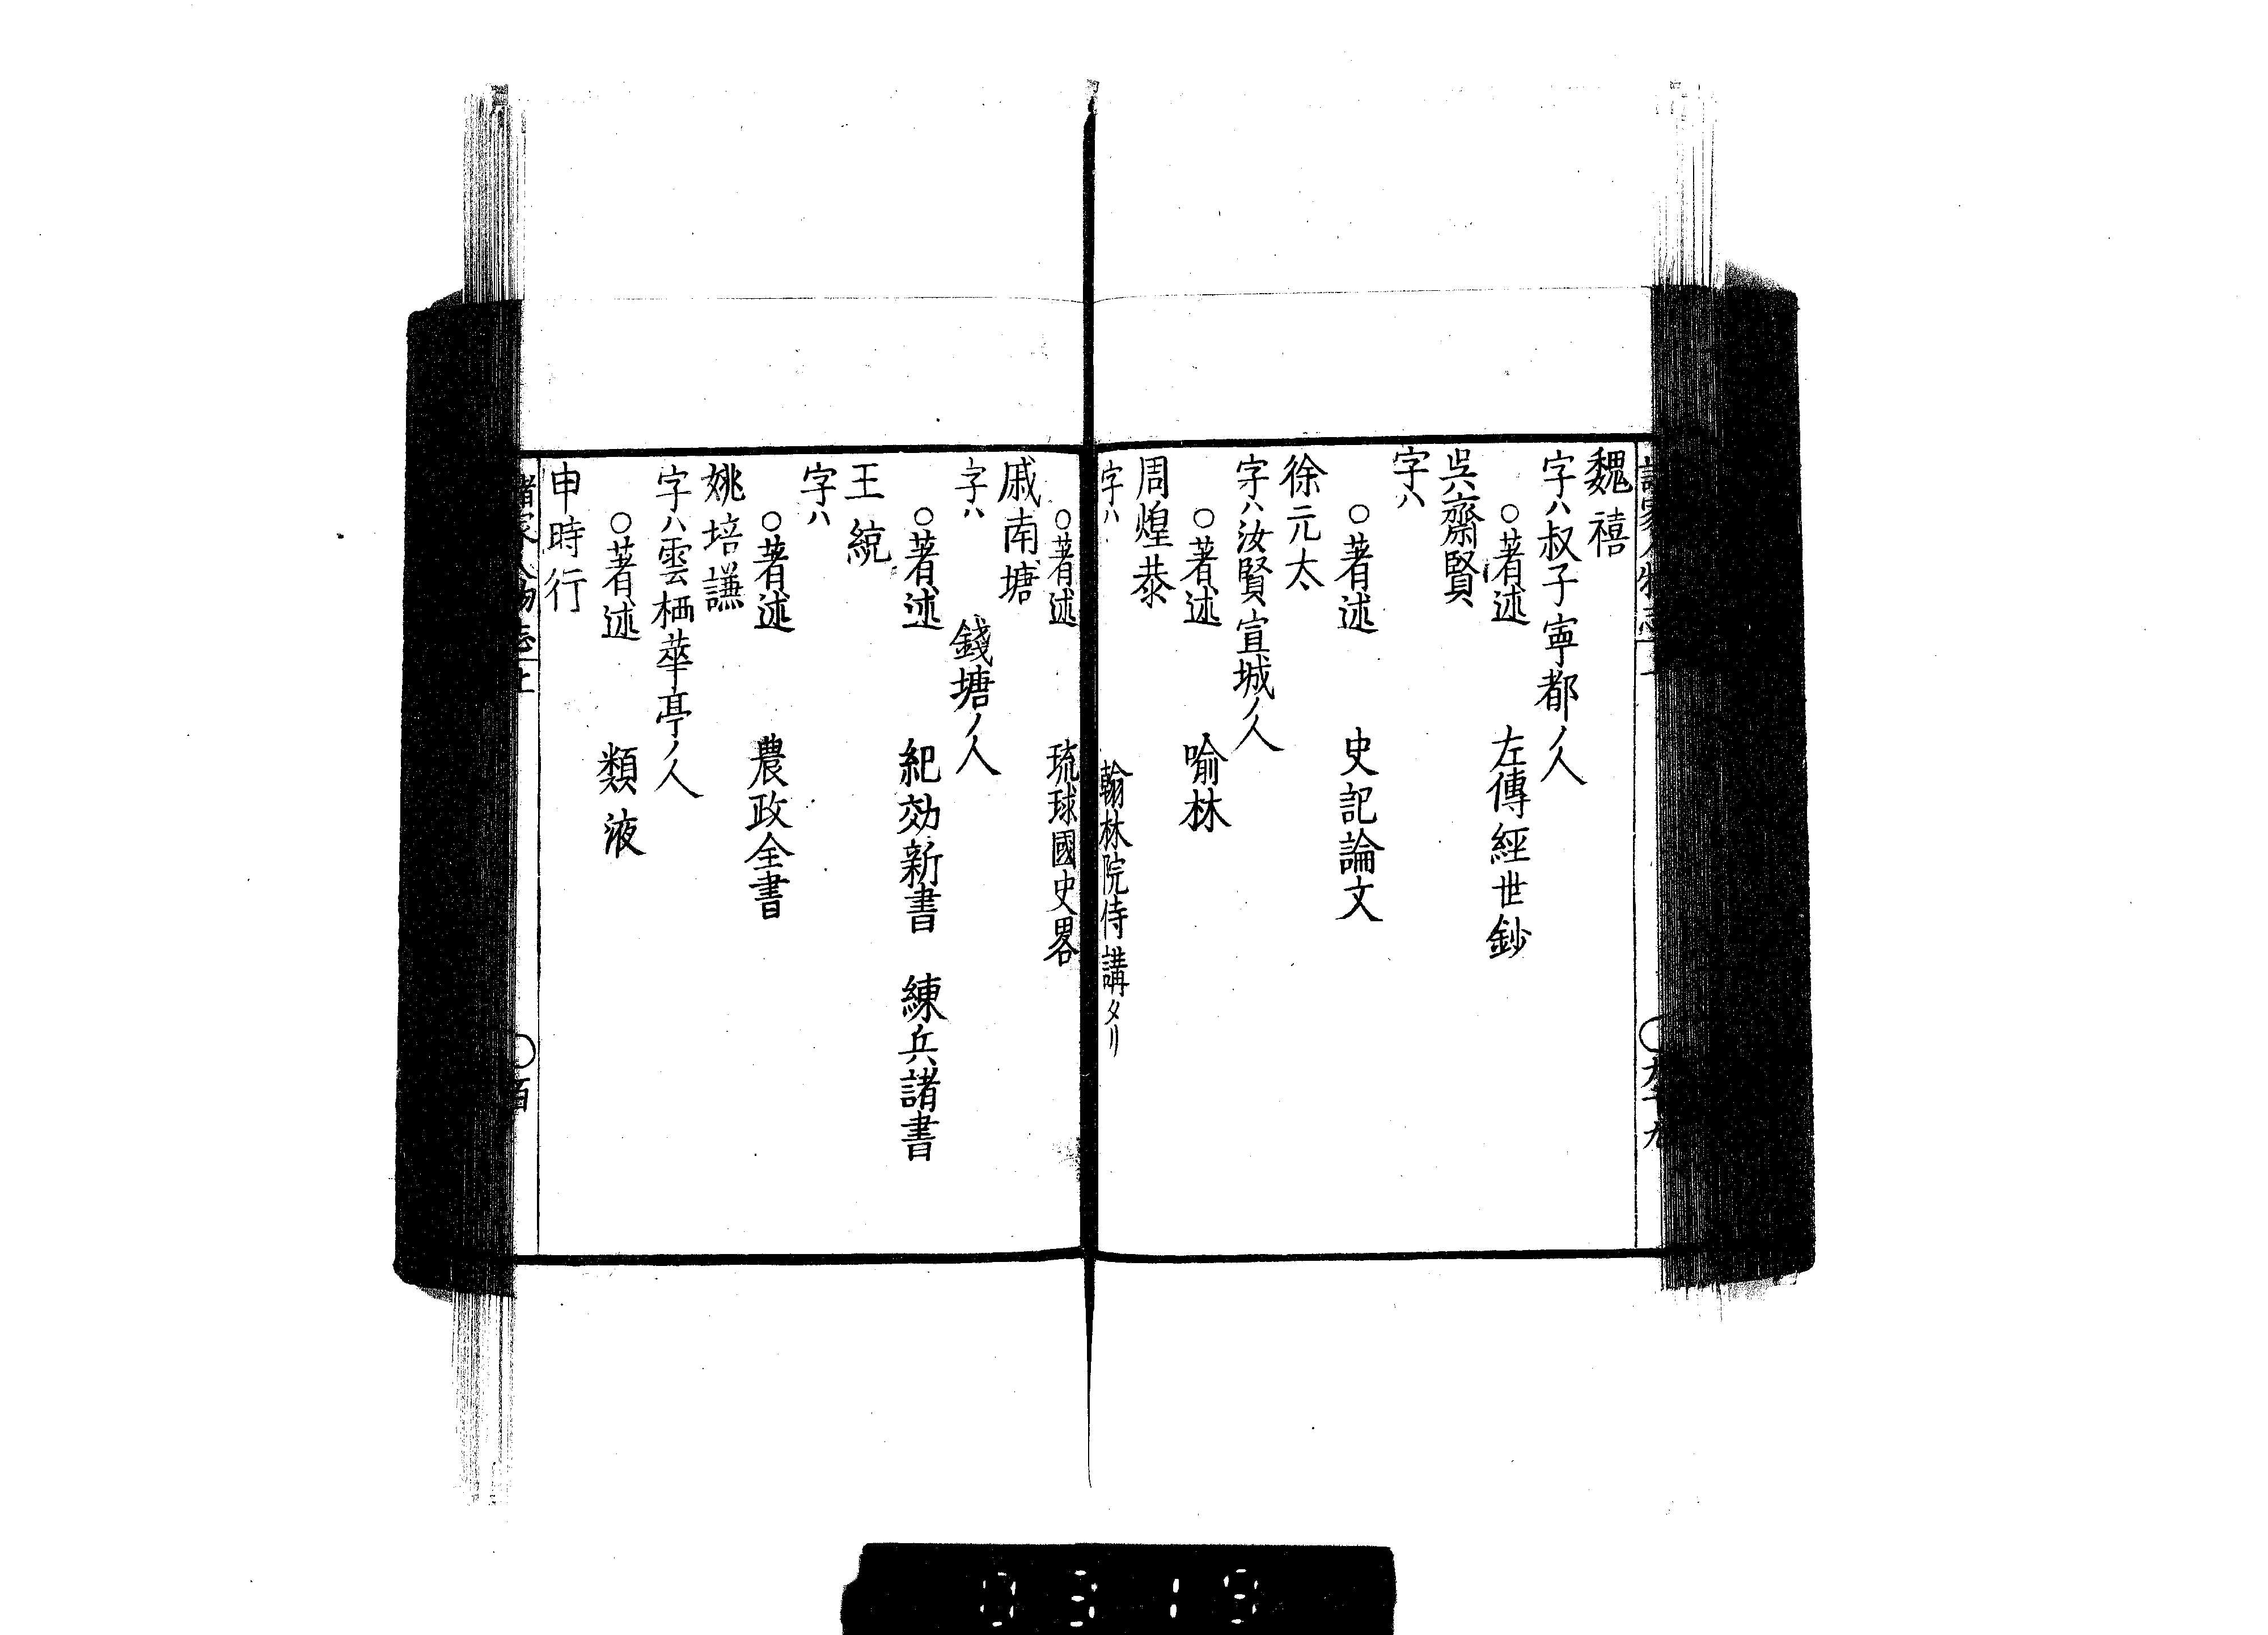 魏禧
字ハ叔子寧都ノ人
○著述 左傳經世鈔
呉齋賢
字ハ
○著述 史記論文
徐元太
字ハ汝賢宣城ノ人
○著述 喻林
周煌恭
字ハ 翰林院侍講タリ
○著述 琉球國史畧
戚南塘
字ハ 錢塘ノ人
○著述 紀効新書 練兵諸書
王綂
字ハ
○著述 農政全書
姚培謙
字ハ雲栖華亭ノ人
○著述 類液
申時行
諸家人物志上 ○百
0319